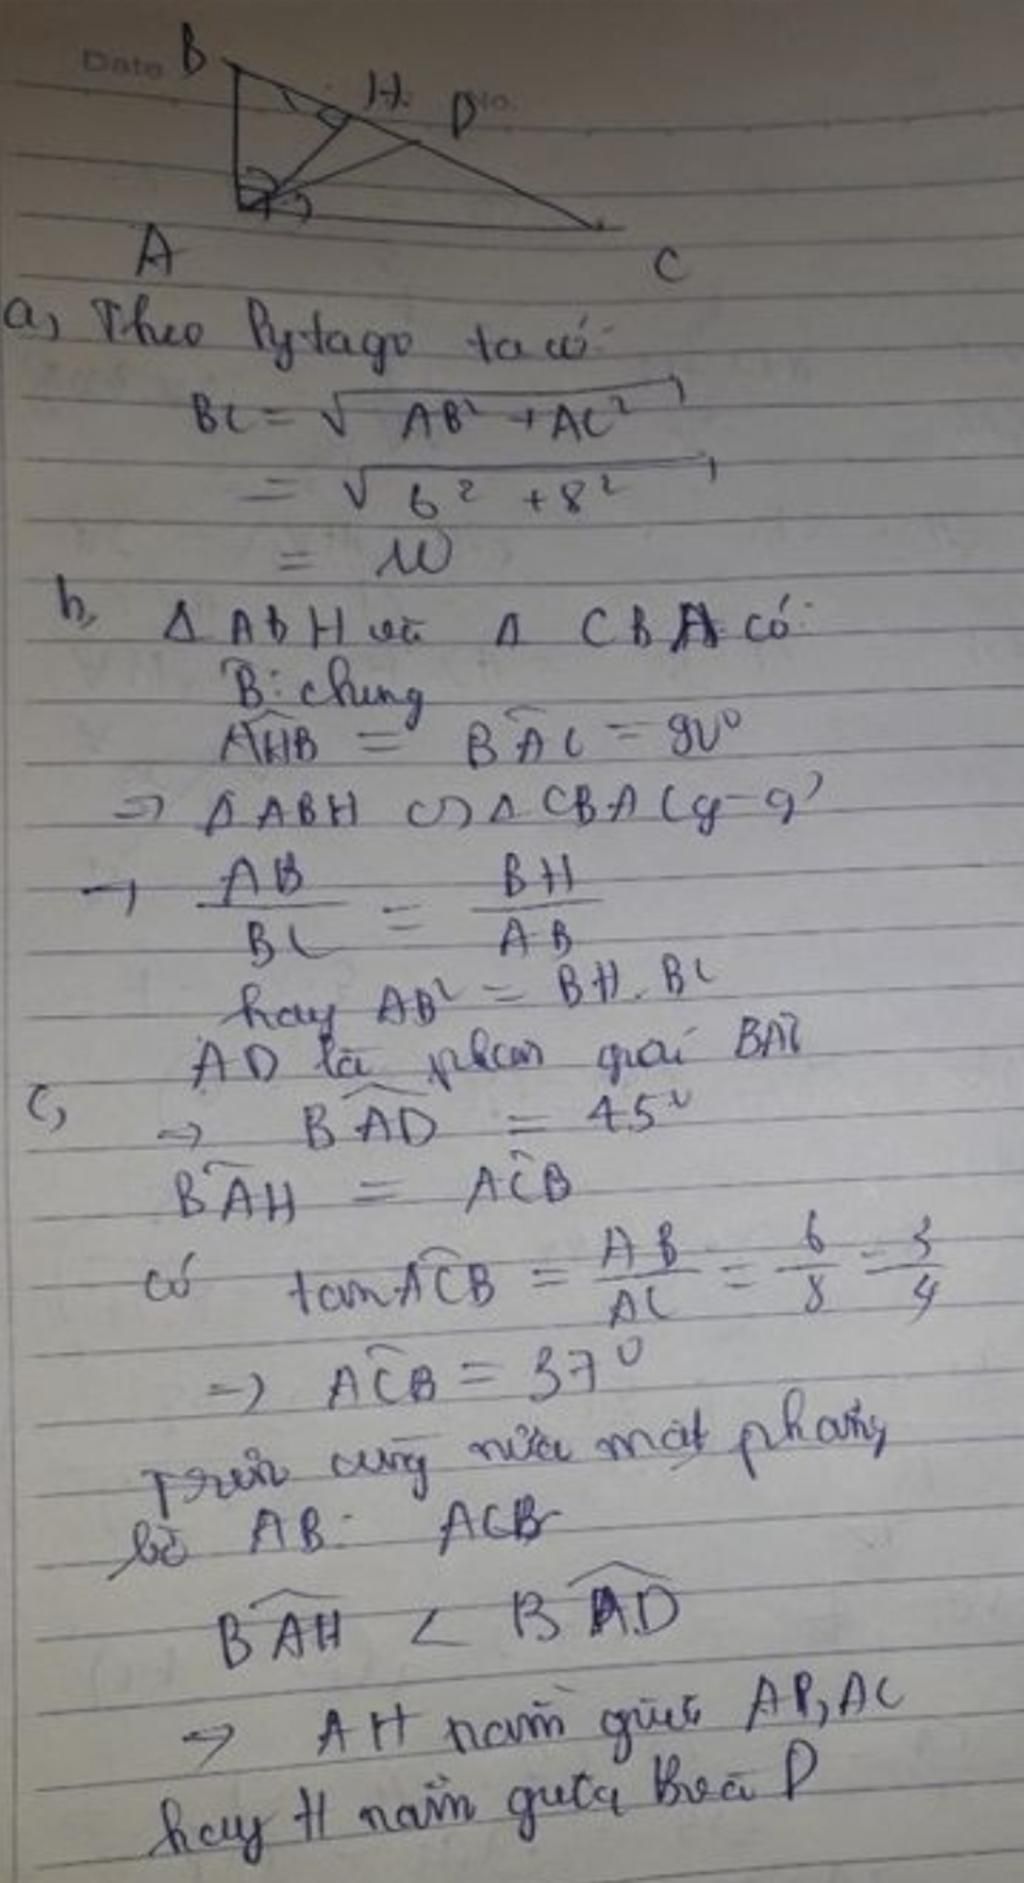 Date
No.
B
H
D
A
C
a, Theo Pytago ta có:
BC = √AB² + AC²
= √6² + 8²
= 10
b, Δ ABH và Δ CBA có:
B: chung
AHB = BAC = 90°
=> Δ ABH ∽ Δ CBA (g-g)
→ AB/BC = BH/AB
hay AB² = BH.BC
AD là phân giác BAC
c, => BAD = 45°
BAH = ACB
có tan ACB = AB/AC = 6/8 = 3/4
=> ACB = 37°
Trên cùng nửa mặt phẳng
bờ AB: ACB
BAH < BAD
=> AH nằm giữa AD, AC
hay H nằm giữa B và D